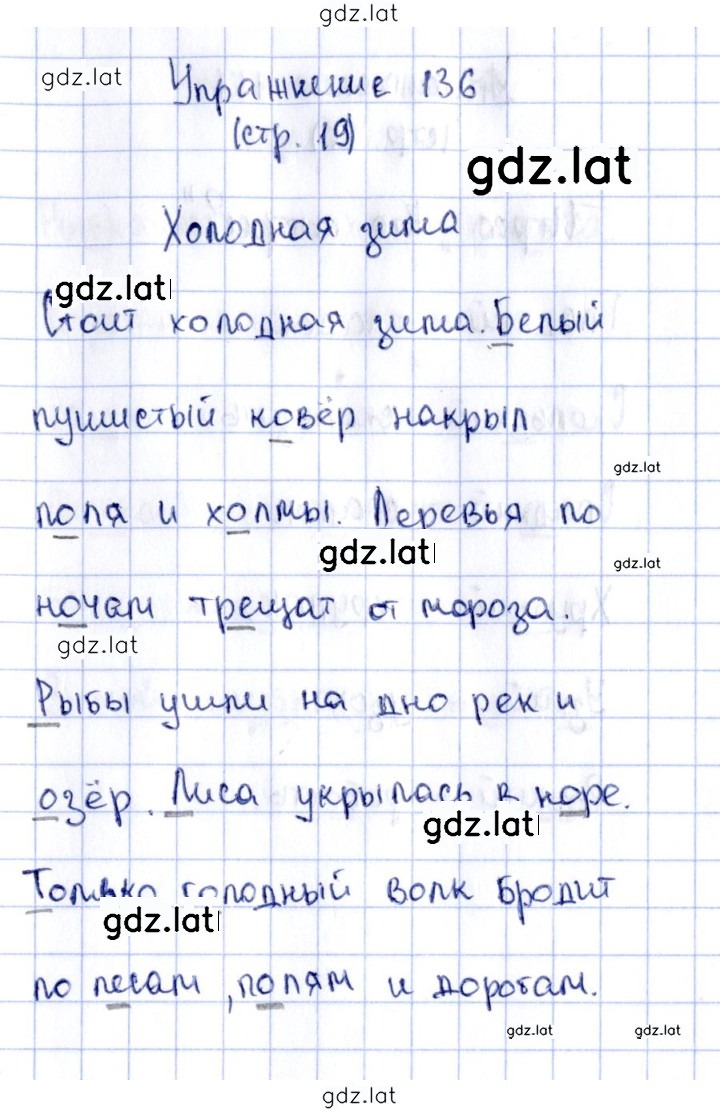 gdz.lat
gdz.lat
Упражнение 136
(стр. 19)
gdz.lat
Холодная зима
gdz.lat
Стоит холодная зима. Белый
пушистый ковёр накрыл
gdz.lat
поля и холмы. Деревья по
gdz.lat
gdz.lat
ночам трещат от мороза.
gdz.lat
Рыбы ушли на дно рек и
озёр. Лиса укрылась в норе.
gdz.lat
Только голодный волк бродит
gdz.lat
по лесам, полям и дорогам.
gdz.lat
gdz.lat
gdz.lat